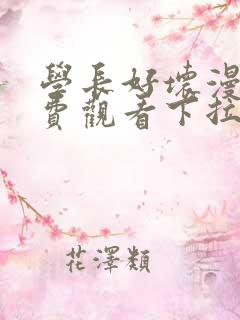 學長好壞漫
費觀看下拉
花澤類